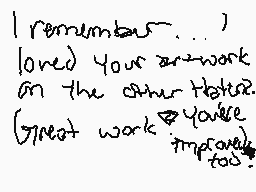 I remember...
loved your art-work
on the other Hatena.
Great work. ♥ You're
improved
too.